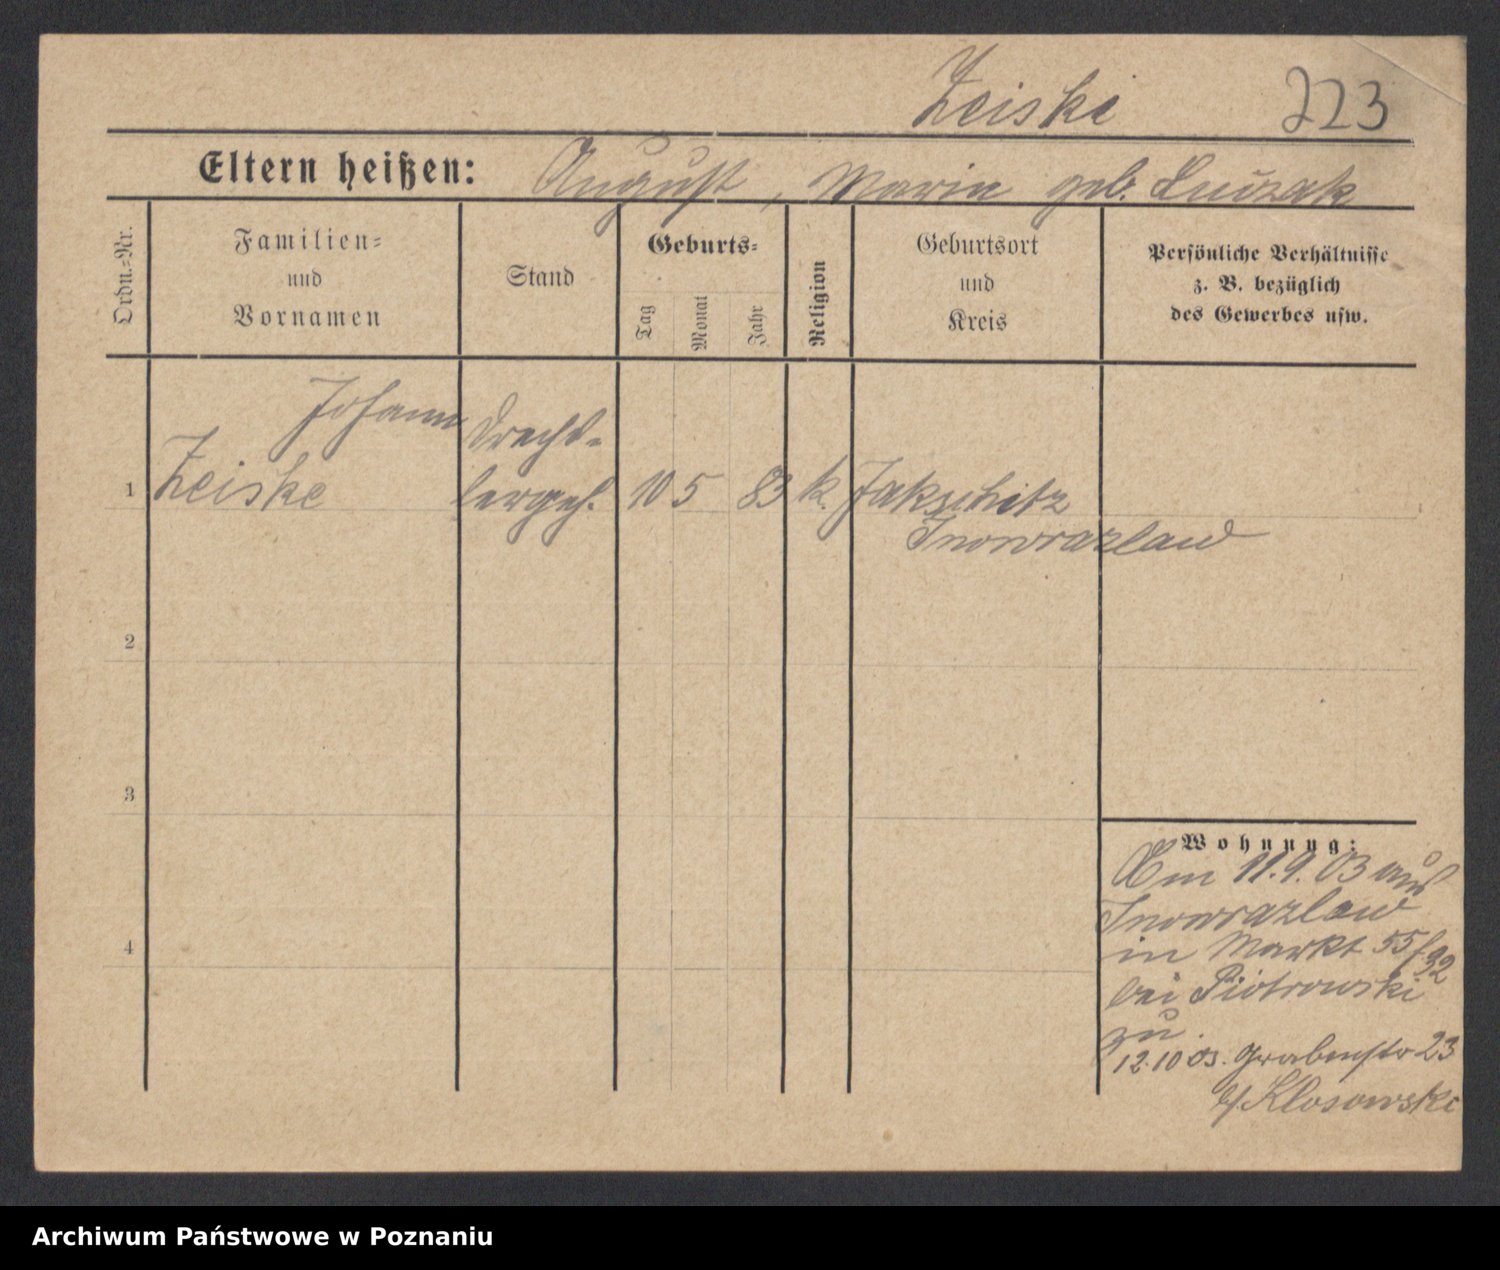 Zeiske 223
Eltern heißen: August, Maria geb. Luczak
Ordn.=Nr.
Familien=
und
Vornamen
Stand
Geburts=
Tag
Monat
Jahr
Religion
Geburtsort
und
Kreis
Persönliche Verhältnisse
z. B. bezüglich
des Gewerbes usw.
Johann Drechs-
1 Zeiske lergeh. 10 5 83 k. Jakschitz
Inowrazlaw
2
3
4
Wohnung:
Am 11.9.03 aus
Inowrazlaw
in Markt 55/
bei Piotrowski
zu.
12.10 03. Grabenstr 23
b/ Klosowski
Archiwum Państwowe w Poznaniu